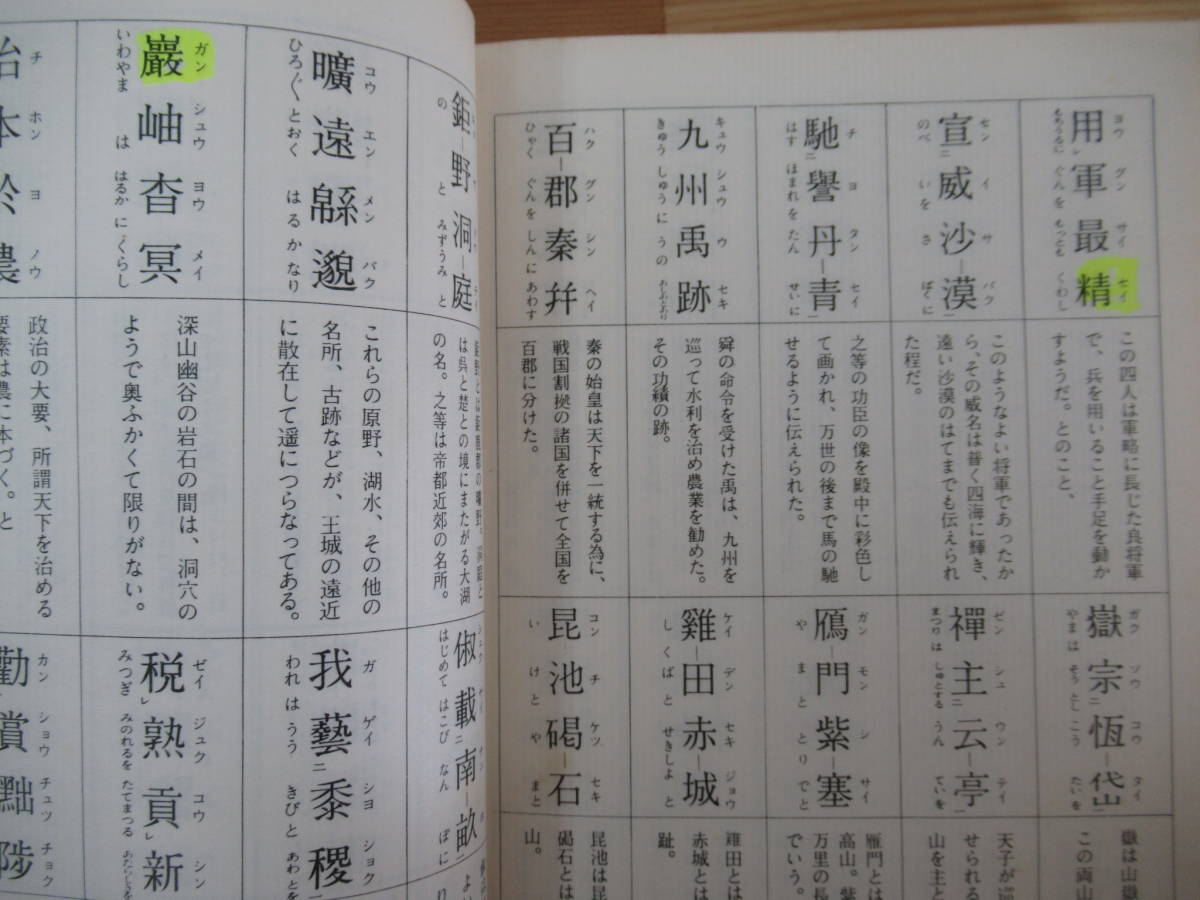 用軍最精
ヨウ グン サイ セイ
もちうるに ぐんを もっとも くわし
この四人は軍略に長じた良将軍
で、兵を用いること手足を動か
すようだ。とのこと、
嶽宗恆岱
ガク ソウ コウ タイ
やまは そうとし こう たいを
嶽は山嶽
この両山
宣威沙漠
セン イ サ バク
のべ いを さ ばくに
このようなよい将軍であったか
ら、その威名は普く四海に輝き、
遠い沙漠のはてまでも伝えられ
た程だ。
禪主云亭
ゼン シュ ウン テイ
まつりは しゅとする うん ていを
天子が巡
せられる
山を主と
馳譽丹青
チ ヨ タン セイ
はす ほまれを たん せいに
之等の功臣の像を殿中に彩色し
て画かれ、万世の後まで馬の馳
せるように伝えられた。
鴈門紫塞
ガン モン シ サイ
や まと とり でと
雁門とは
高山。紫
万里の長
でいう。
九州禹跡
キュウ シュウ ウ セキ
きゅう しゅうに うの
舜の命令を受けた禹は、九州を
巡って水利を治め農業を勧めた。
その功績の跡。
雞田赤城
ケイ デン セキ ジョウ
しくばと せきしよと
雞田とは
赤城とは
趾。
百郡秦幷
ハク グン シン ヘイ
ひゃく ぐんを しんに あわす
秦の始皇は天下を一統する為に、
戦国割拠の諸国を併せて全国を
百郡に分けた。
昆池碣石
コン チ ケツ セキ
いけと やまと
昆池は昆
碣石とは
山。
鉅野洞庭
の と みずうみと
は呉と楚との境にまたがる大湖
の名。之等は帝都近郊の名所。
俶載南畝
はじめて はこび なん ぽに
曠遠緜邈
コウ エン メン バク
ひろ〴〵とおく はるかなり
これらの原野、湖水、その他の
名所、古跡などが、王城の遠近
に散在して遥につらなってある。
我藝黍稷
ガ ゲイ シヨ ショク
われは うう きびと あわとを
巖岫杳冥
ガン シュウ ヨウ メイ
いわやまは はるかに くらし
深山幽谷の岩石の間は、洞穴の
ようで奥ふかくて限りがない。
税熟貢新
ゼイ ジュク コウ シン
みつぎ みのれるを たてまつる あたらしきを
治本於農
チ ホン ヨ ノウ
政治の大要、所謂天下を治める
要素は農に本づく。と
勸賞黜陟
カン ショウ チュツ チョク